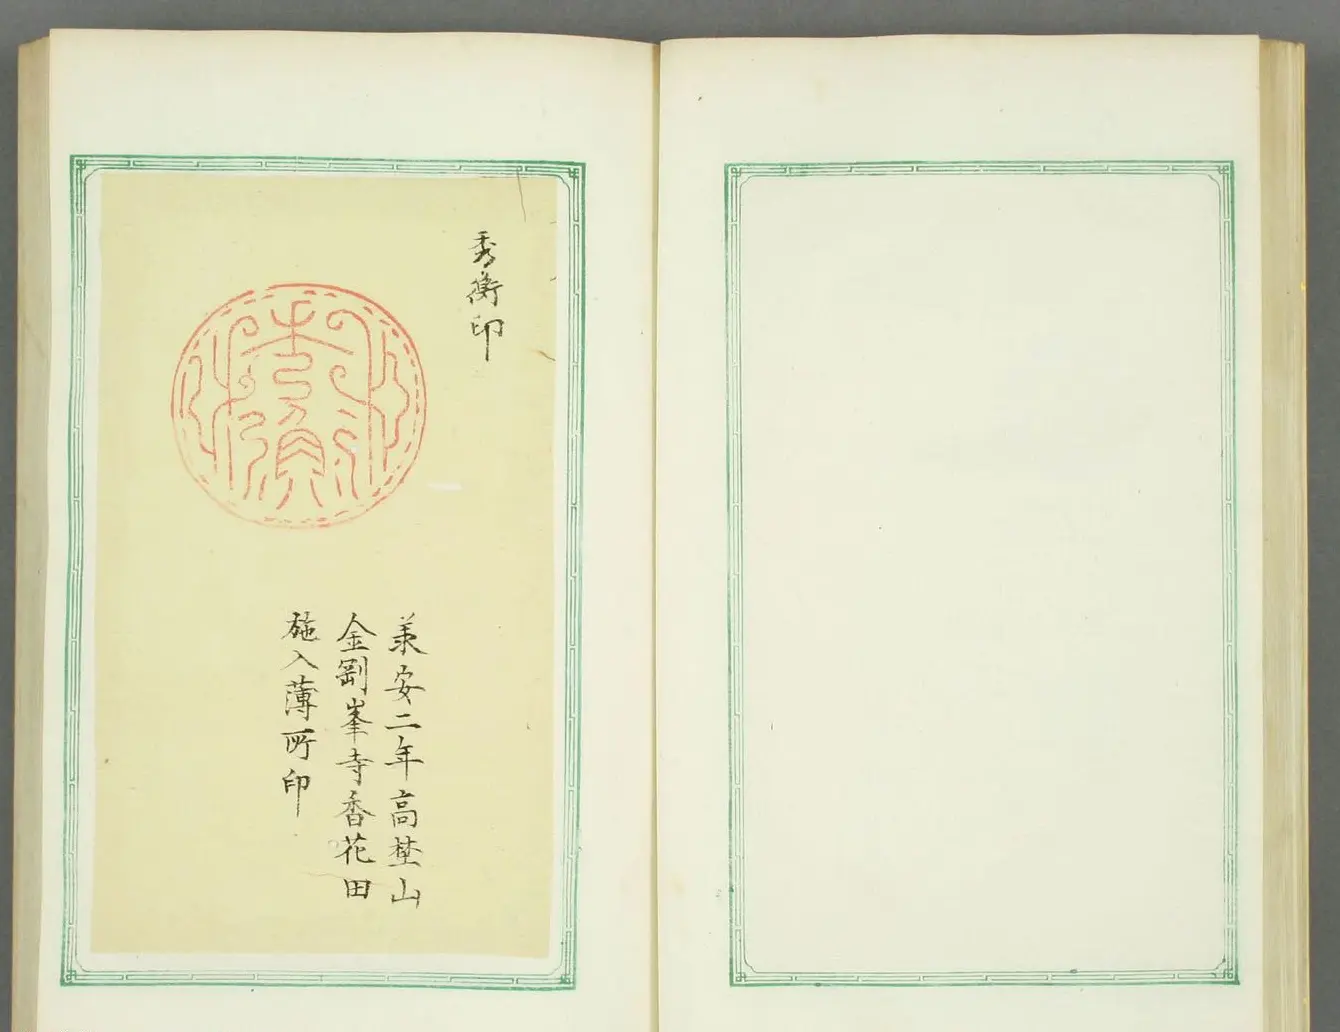 秀衡印
秀衡
承安二年高埜山
金剛峯寺香花田
施入薄所印